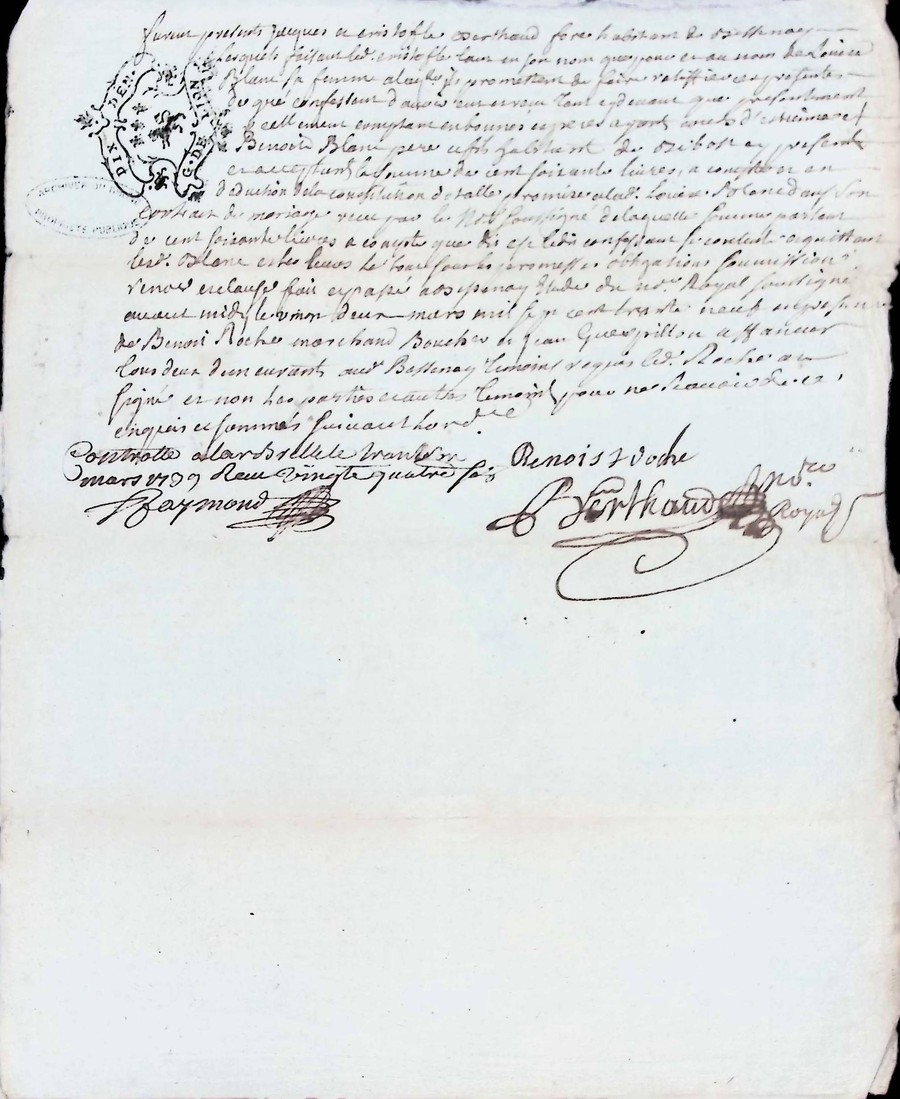 furent presents Jacques et Cristofle Berthaud frere habitant de Bessenay
Lesquels faisant led. Cristofle tant en son nom que pour et au nom de Louise
Blanc sa femme a laq.le promettent de faire rattiffier ces presentes
de gré confessent d'avoir eut et receu tant cydevant que presentement
reellement comptant en bonnes especes ayant cours d' et
Benoit Blanc pere et fils habitant de Bibost cy present
et acceptant la somme de cent soixante livres, a compte et en
deduction de la constitution d'etalle promise a lad. Louise Blanc dans son
contract de mariage receu par le No.re soussigné de laquelle somme partant
de cent soixante livres a compte que dit est lesd. confessant se content et quittent
lesd. Blanc et les leurs le tout sous les promesses obligations soumissions
renon.on et clause fait et passé a Bessenay Etude du no.re Royal soussigné
avant midy le vingt deux mars mil sept cent trante neuf en presence
de Benoit Roche marchand Boucher et Jean affaneur
tous deux demeurants aud. Bessenay temoins requis led. Roche a
signé et non les parties et autre temoint pour ne scavoir de ce
enquis et sommés suivant l'ord.ce
Controllé a Larbresle le trante
mars 1739 Receu vingte quatre sols
Raymond
Benoist Roche
Berthaud no.re
Royal
DIX DEN.
G. DE LION